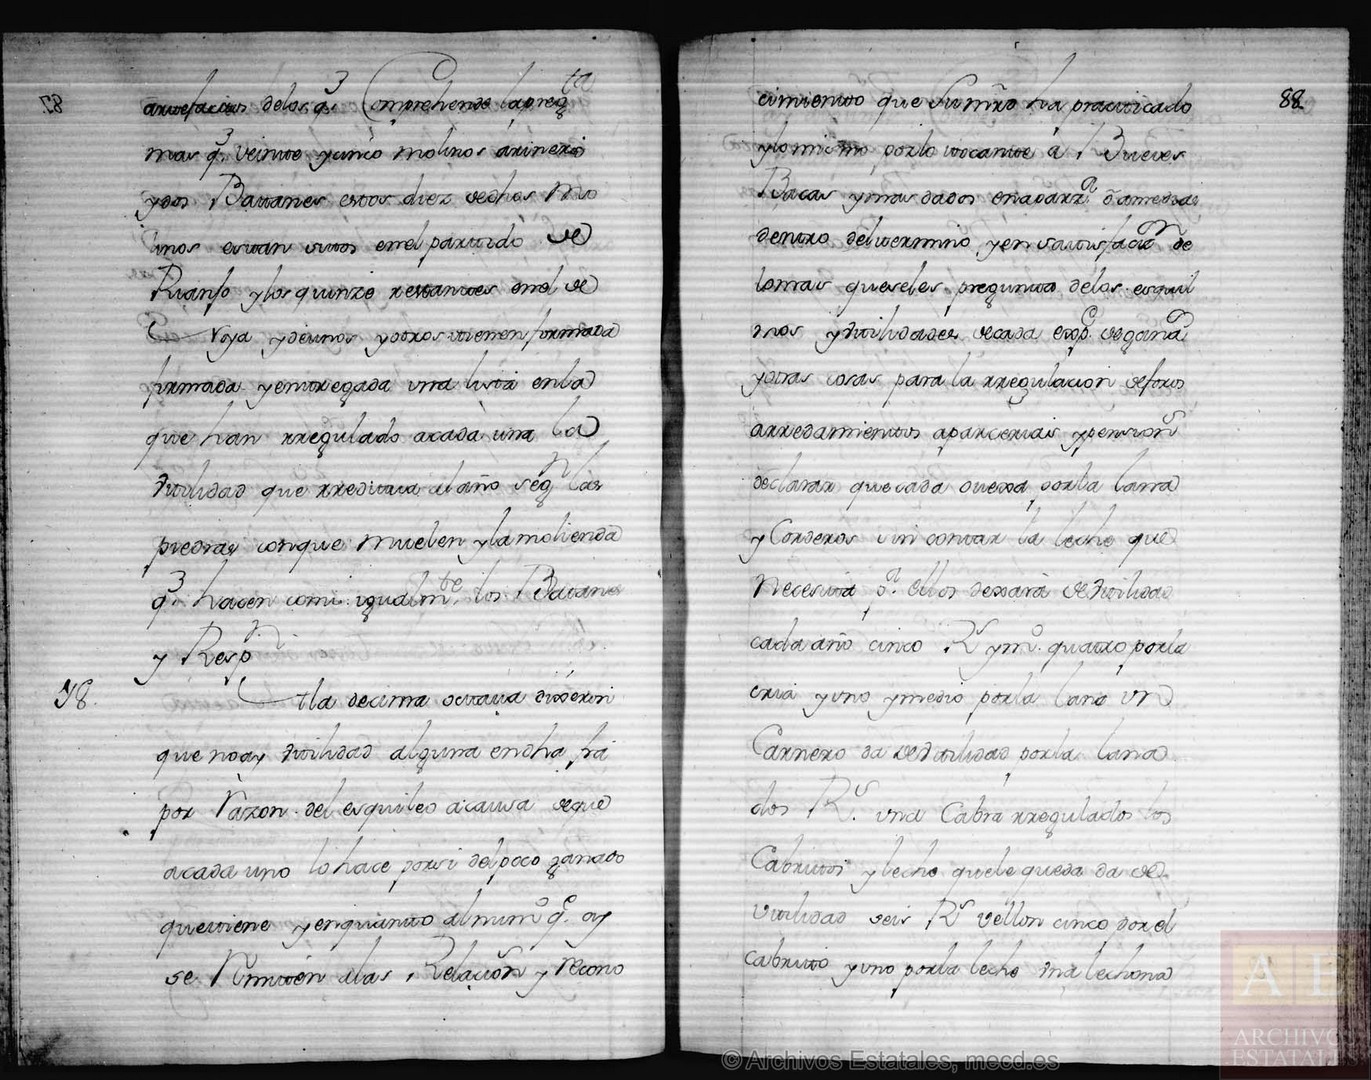 artefactos de los q.e Comprehende la preg.ta
mas q.e veinte y cinco molinos arineros
y dos Batanes estos diez dechos Mo
linos estan sitos en el partido de
Rianjo y los quinze restantes en el de
Noya y de unos y otros tienen formada
firmada y entregada una lista en la
que han rregulado a cada una la
Vtilidad que rreditua al año seg.n las
piedras con que muelen y la molienda
q.e hacen como igualm.te los Batanes
y Resp.n
18. A la decima octava dixeron
que no ay Vtilidad alguna en dha fra
por Razon del esquileo a causa de que
a cada uno lo hace por si del poco ganado
que tiene y en quanto al num.o q.e ay
se Rmiten alas Relacion.s y Recono
88
cimiento que Sumrzd ha practicado
y lo mismo por lo tocante a Bueyes
Bacas y mas dados en aparz.a o a medias
dentro del termino y en satisfac.on de
lo mas que se les pregunta de los esquil
mos y Vtilidades de cada esp.e de gana.o
y otras cosas para la rregulacion de foros
arredamientos aparcerias y pension.s
declaran que cada ovexa por la lana
y Corderos sin contar la leche que
Necesita p.a ellos dexara de Vtilidad
cada año cinco R.s y m.o quatro por la
cria y uno y medio por la lana un
Carnero da de Vtilidad por la lana
dos R.s una Cabra rregulados los
Cabritos y leche que le queda da de
Vtilidad seis R.s vellon cinco por el
Cabrito y uno por la leche Vna lechona
© Archivos Estatales, mecd.es
AE
ARCHIVOS
ESTATALES